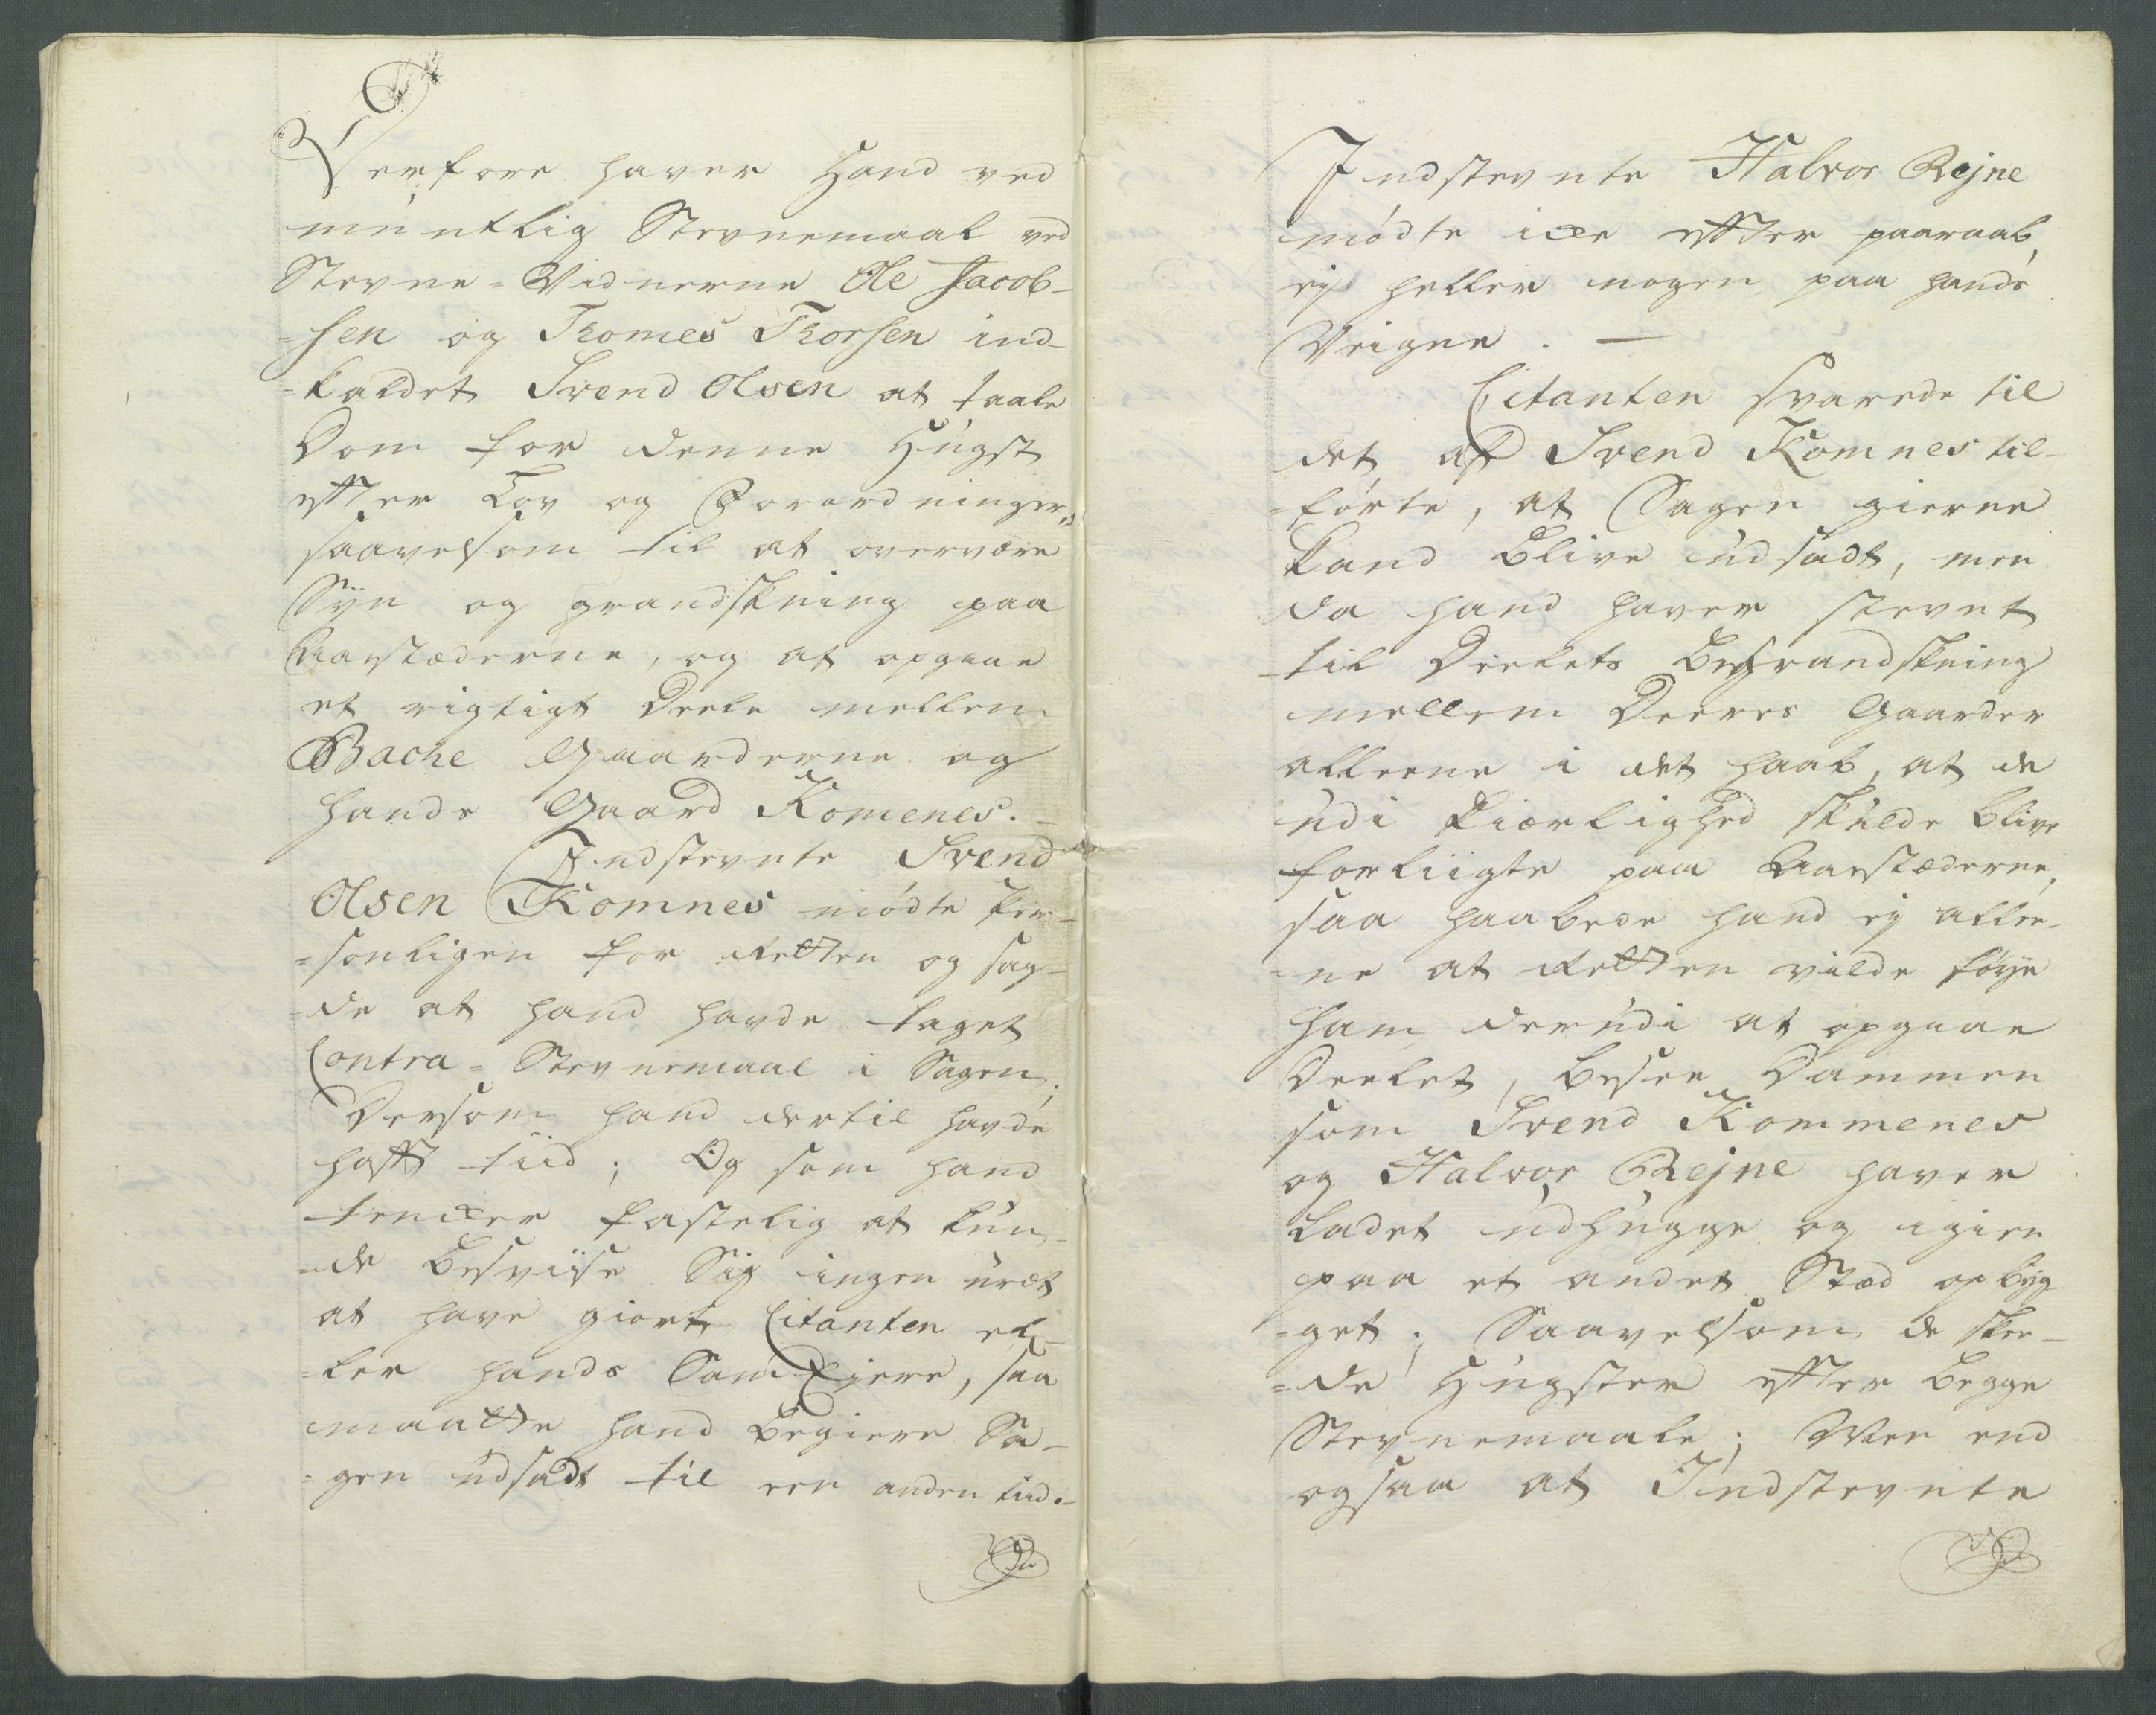 Derfore haver Hand ved
muntlig Stevnemaal ved
Stevne-Vidnerne Ole Jacob-
=sen og Thomes Thorsen ind-
=kaldet Svend Olsen at taale
Dom for denne Hugst
effter Lov og Forordninger,,
saavelsom til at overvære
Syn og grandskning paa
Aastæderne, og at opgaae
et rigtigt Deele mellem
Bache Gaarderne og
hands Gaard Komenes. -
Indstevnte Svend
Olsen Komnes mødte per-
=sonligen for Retten og sag-
=de at hand havde taget
Contra-Stevnemaal i Sagen,
Dersom hand dertil havde
hafft tiid; Og som hand
tencker fastelig at kun-
=de beviise Sig ingen uræt
at have giort Citanten el-
=ler hands Sam Ejere, saa
maatte hand begiere Sa-
=gen udsadt til een anden tiid.-
Indstevnte Halvor Rejne
mødte icke effter paaraab,
ej heller nogen paa hands
Veigne. —
Citanten svarede til
det af Svend Komnes til-
=førte, at Sagen gierne
kand blive udsadt, men
da hand haver stevnt
til Deelets begrandskning
mellem Deeres Gaarder
alleene i det haab, at de
udi kiærlighed skulde blive
forliigte paa Aastæderne,
saa haabede hand ej allee-
=ne at Retten vilde føye
ham derudi at opgaae
Deelet, besee Dammen
som Svend Kommenes
og Halvor Rejne haver
ladet udhugge og igien
paa et andet Stæd opbyg-
=get; Saavelsom de skee-
=de Hugster effter begge
Stevnemaale; Men end
ogsaa at Indstevnte